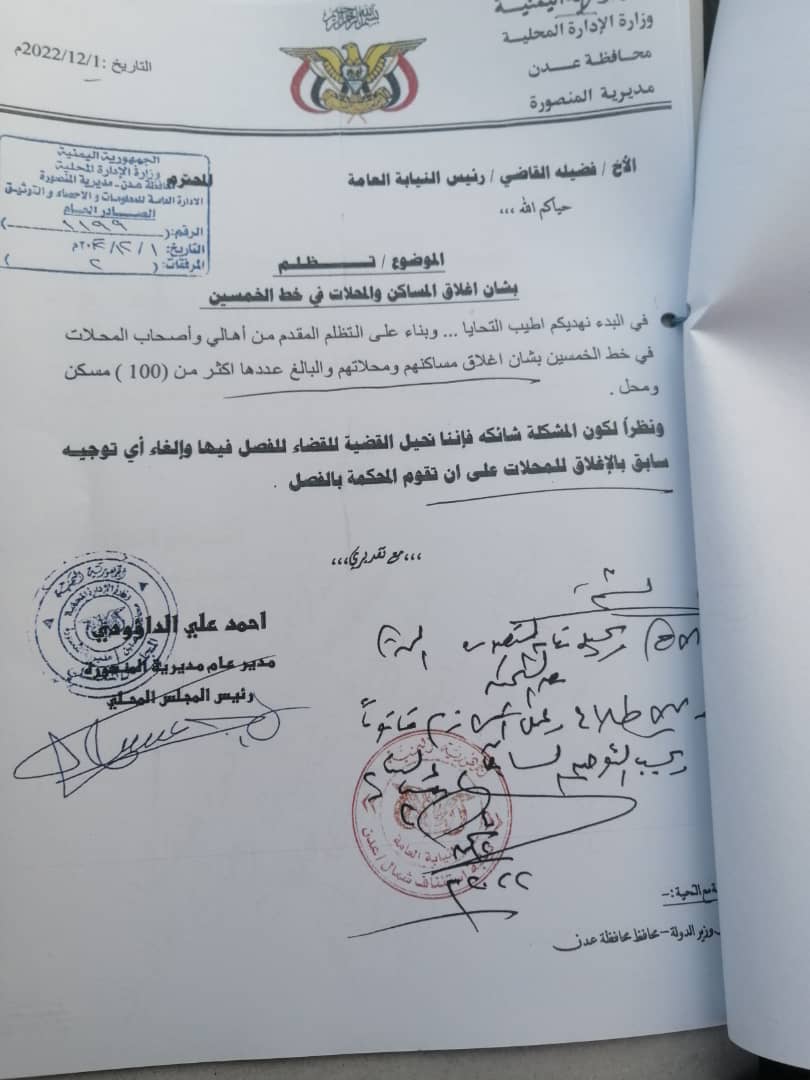 بسم الله الرحمن الرحيم
اليمنية
وزارة الإدارة المحلية
محافظة عدن
مديرية المنصورة
التاريخ :2022/12/1م
الجمهورية اليمنية
وزارة الإدارة المحلية
محافظة عدن - مديرية المنصورة
الادارة العامة للمعلومات و الاحصاء و التوثيق
الصادر العام
الرقم:( ١١٩٩ )
التاريخ: ١ / ١٢ / م
المرفقات: ( ٢ )
الأخ / فضيله القاضي / رئيس النيابة العامة المحترم
حياكم الله ,,,
الموضوع / تظلم
بشان اغلاق المساكن والمحلات في خط الخمسين
في البدء نهديكم اطيب التحايا ... وبناء على التظلم المقدم من أهالي وأصحاب المحلات
في خط الخمسين بشان اغلاق مساكنهم ومحلاتهم والبالغ عددها اكثر من (100 ) مسكن
ومحل .
ونظراً لكون المشكلة شائكه فإننا نحيل القضية للقضاء للفصل فيها وإلغاء أي توجيه
سابق بالإغلاق للمحلات على ان تقوم المحكمة بالفصل .
,,,مع تقديري,,,
احمد علي الداؤودي
مدير عام مديرية المنصورة
رئيس المجلس المحلي
قانوناً
النيابة العامة
استئناف شمال / عدن
٢٠٢٢
مع التحية :-
وزير الدولة – محافظ محافظة عدن